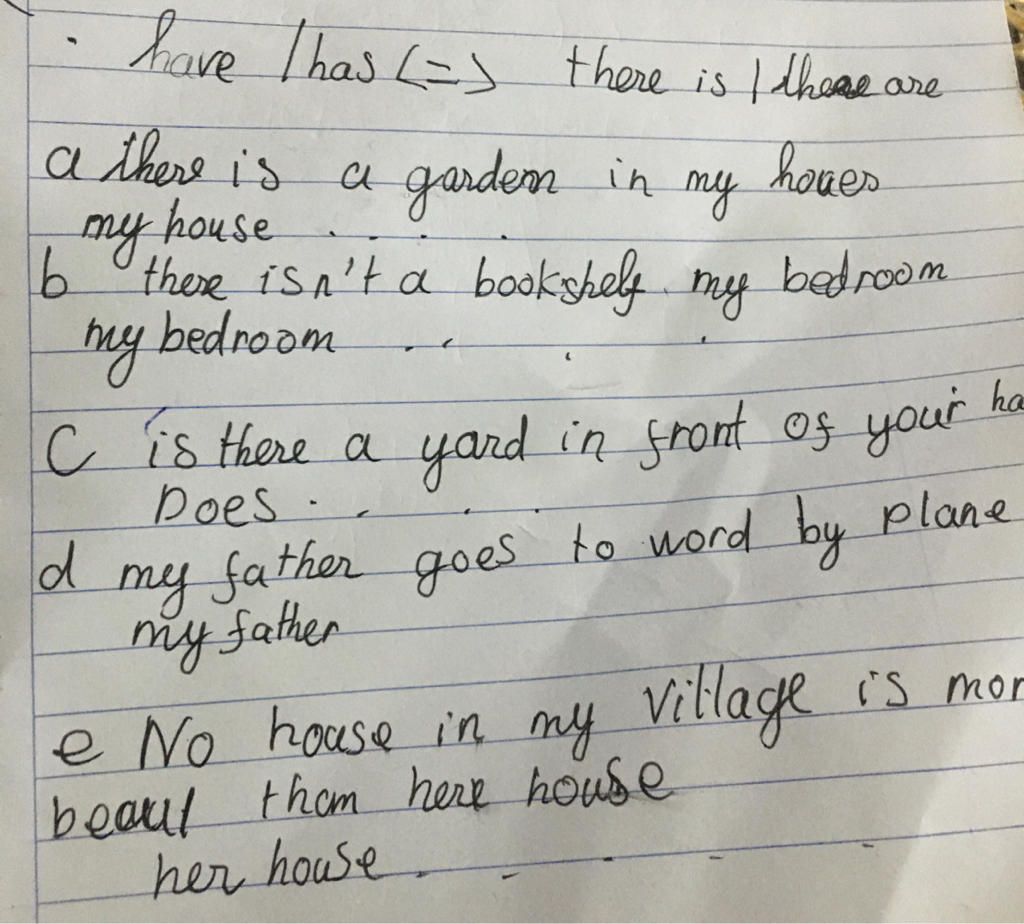 . have / has <=> there is / there are
a there is a garden in my houes
my house . . . .
b there isn't a bookshelf my bedroom
my bedroom . . . .
C is there a yard in front of your ha
Does . . . .
d my father goes to word by plane
my father
e No house in my village is mor
beaul than here house
her house . - - - -